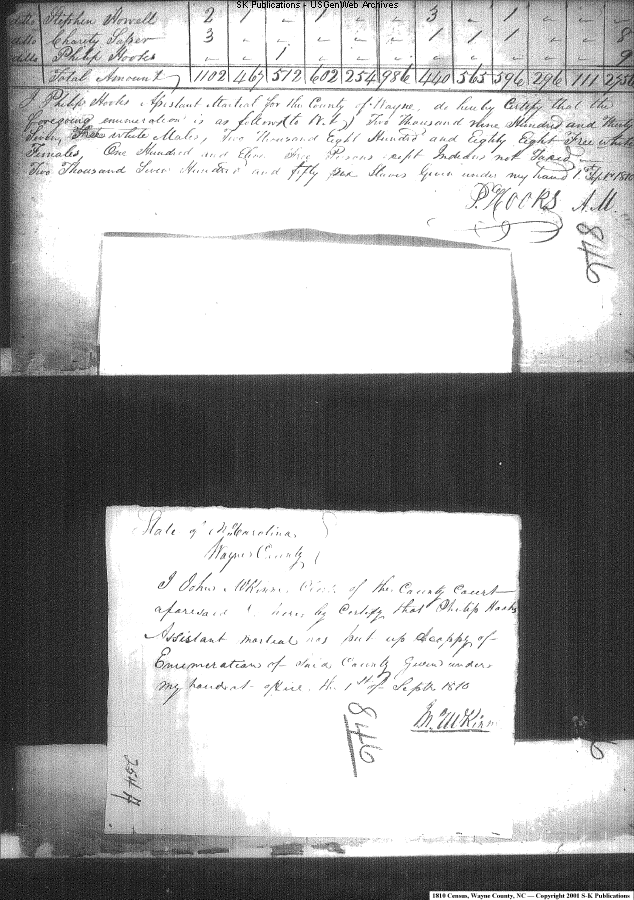 SK Publications - USGenWeb Archives
ditto Stephen Howell 2 1 - 1 - - 3 - 1 - - -
ditto Charity Sasser 3 - - - - - 1 1 1 - - 8
ditto Philip Hooks - - 1 - - - - - - - - 9
Total Amount 1102 467 512 602 254 986 440 565 596 296 111 2756
I Philip Hooks Assistant Martial for the County of Wayne, do hereby Certify that the
foregoing enumeration is as follows (to Wit) Two Thousand nine Hundred and Thirty
Free white Males, Two Thousand Eight Hundred and Eighty Eight Free white
Females, One Hundred and Eleven Free Persons except Indians not Taxed
Two Thousand Seven Hundred and fifty six Slaves Given under my hand 1st Sept 1810
P. HOOKS A.M.
846
State of N. Carolina
Wayne County
I John McKinne Clerk of the County Court
aforesaid do hereby Certify that Philip Hooks
Assistant martial has put up a coppy of
Enumeration of Said County Given under
my hand at office the 1st of Septr 1810
Jn. McKinne
846
254
1810 Census, Wayne County, NC — Copyright 2001 S-K Publications